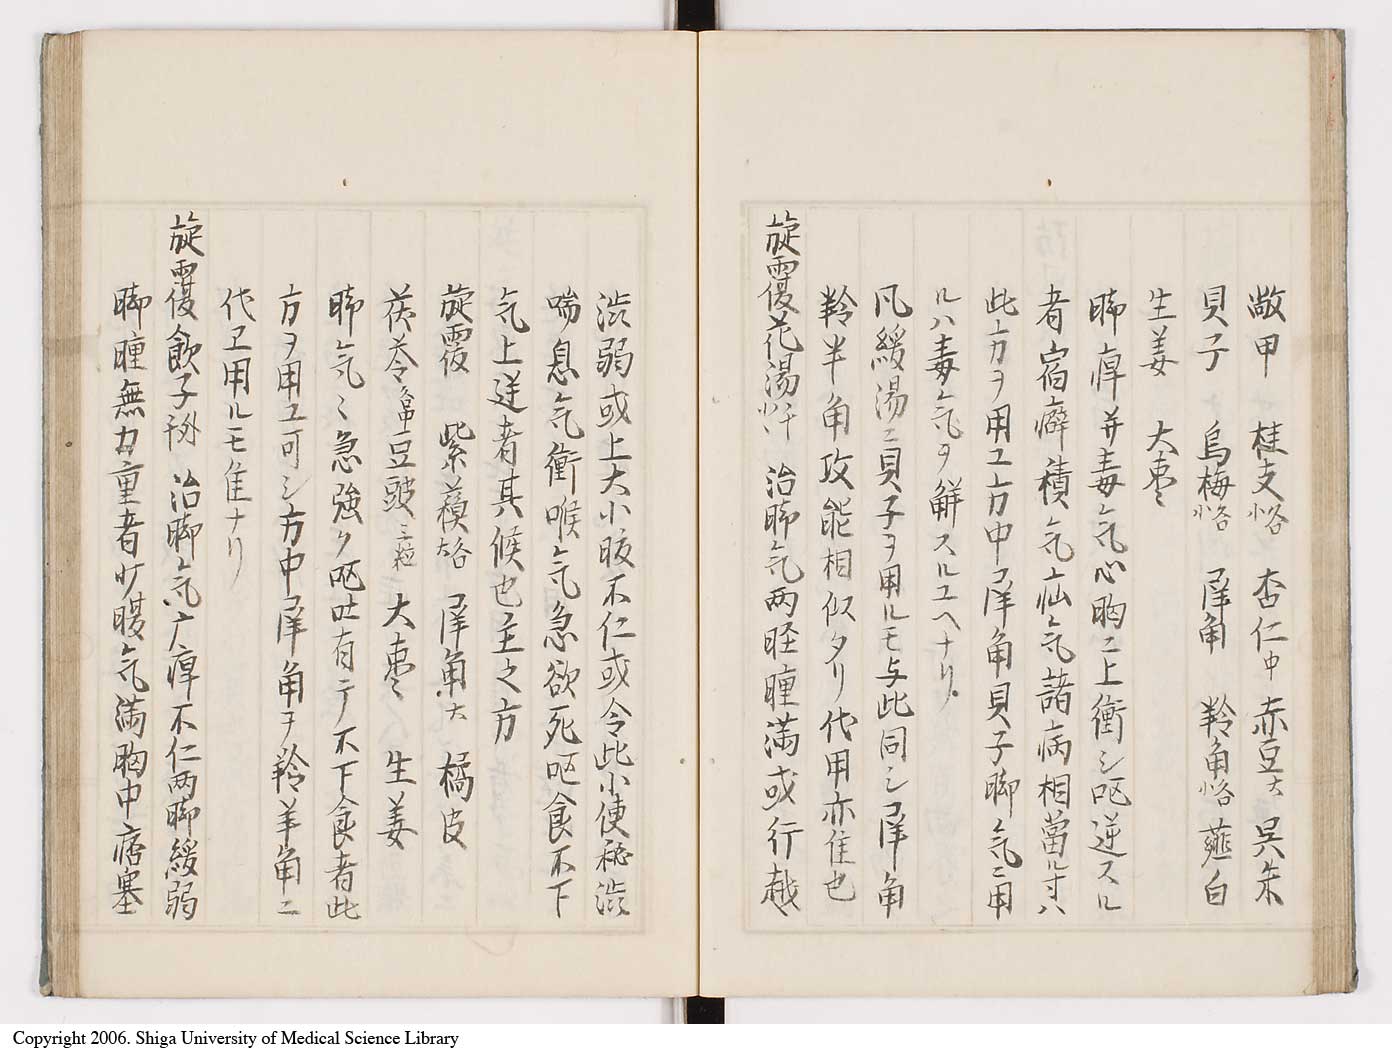 鼈甲 桂支 小 杏仁 中 赤豆 大 呉朱
貝子 烏梅 小 犀角 羚角 薤白
生姜 大棗
脚痺并毒气心胸ニ上衝シ呕逆スル
者宿癖積气疝气諸病相當ル寸ハ
此方ヲ用ユ方中犀角貝子脚气ニ用
ルハ毒气ヲ解スルユヘナリ
凡緩湯ニ貝子ヲ用ルモ与此同シ犀角
羚羊角攻能相似タリ代用亦佳也
旋覆花湯 治脚气两胫腫満或行越
渋弱或上大小腹不仁或令此小便秘渋
喘息气衝喉气急欲死呕食不下
气上逆者其候也主之方
旋覆 紫蘇 犀角 大 橘皮
茯苓 豆豉 三 大棗 生姜
脚气々急強ク呕吐有テ不下食者此
方ヲ用ユ可シ方中犀角ヲ羚羊角ニ
代ヱ用ルモ佳ナリ
旋覆飲子 治脚气疒痺不仁两脚緩弱
脚腫無力重者少腹气満胸中痞塞
Copyright 2006. Shiga University of Medical Science Library